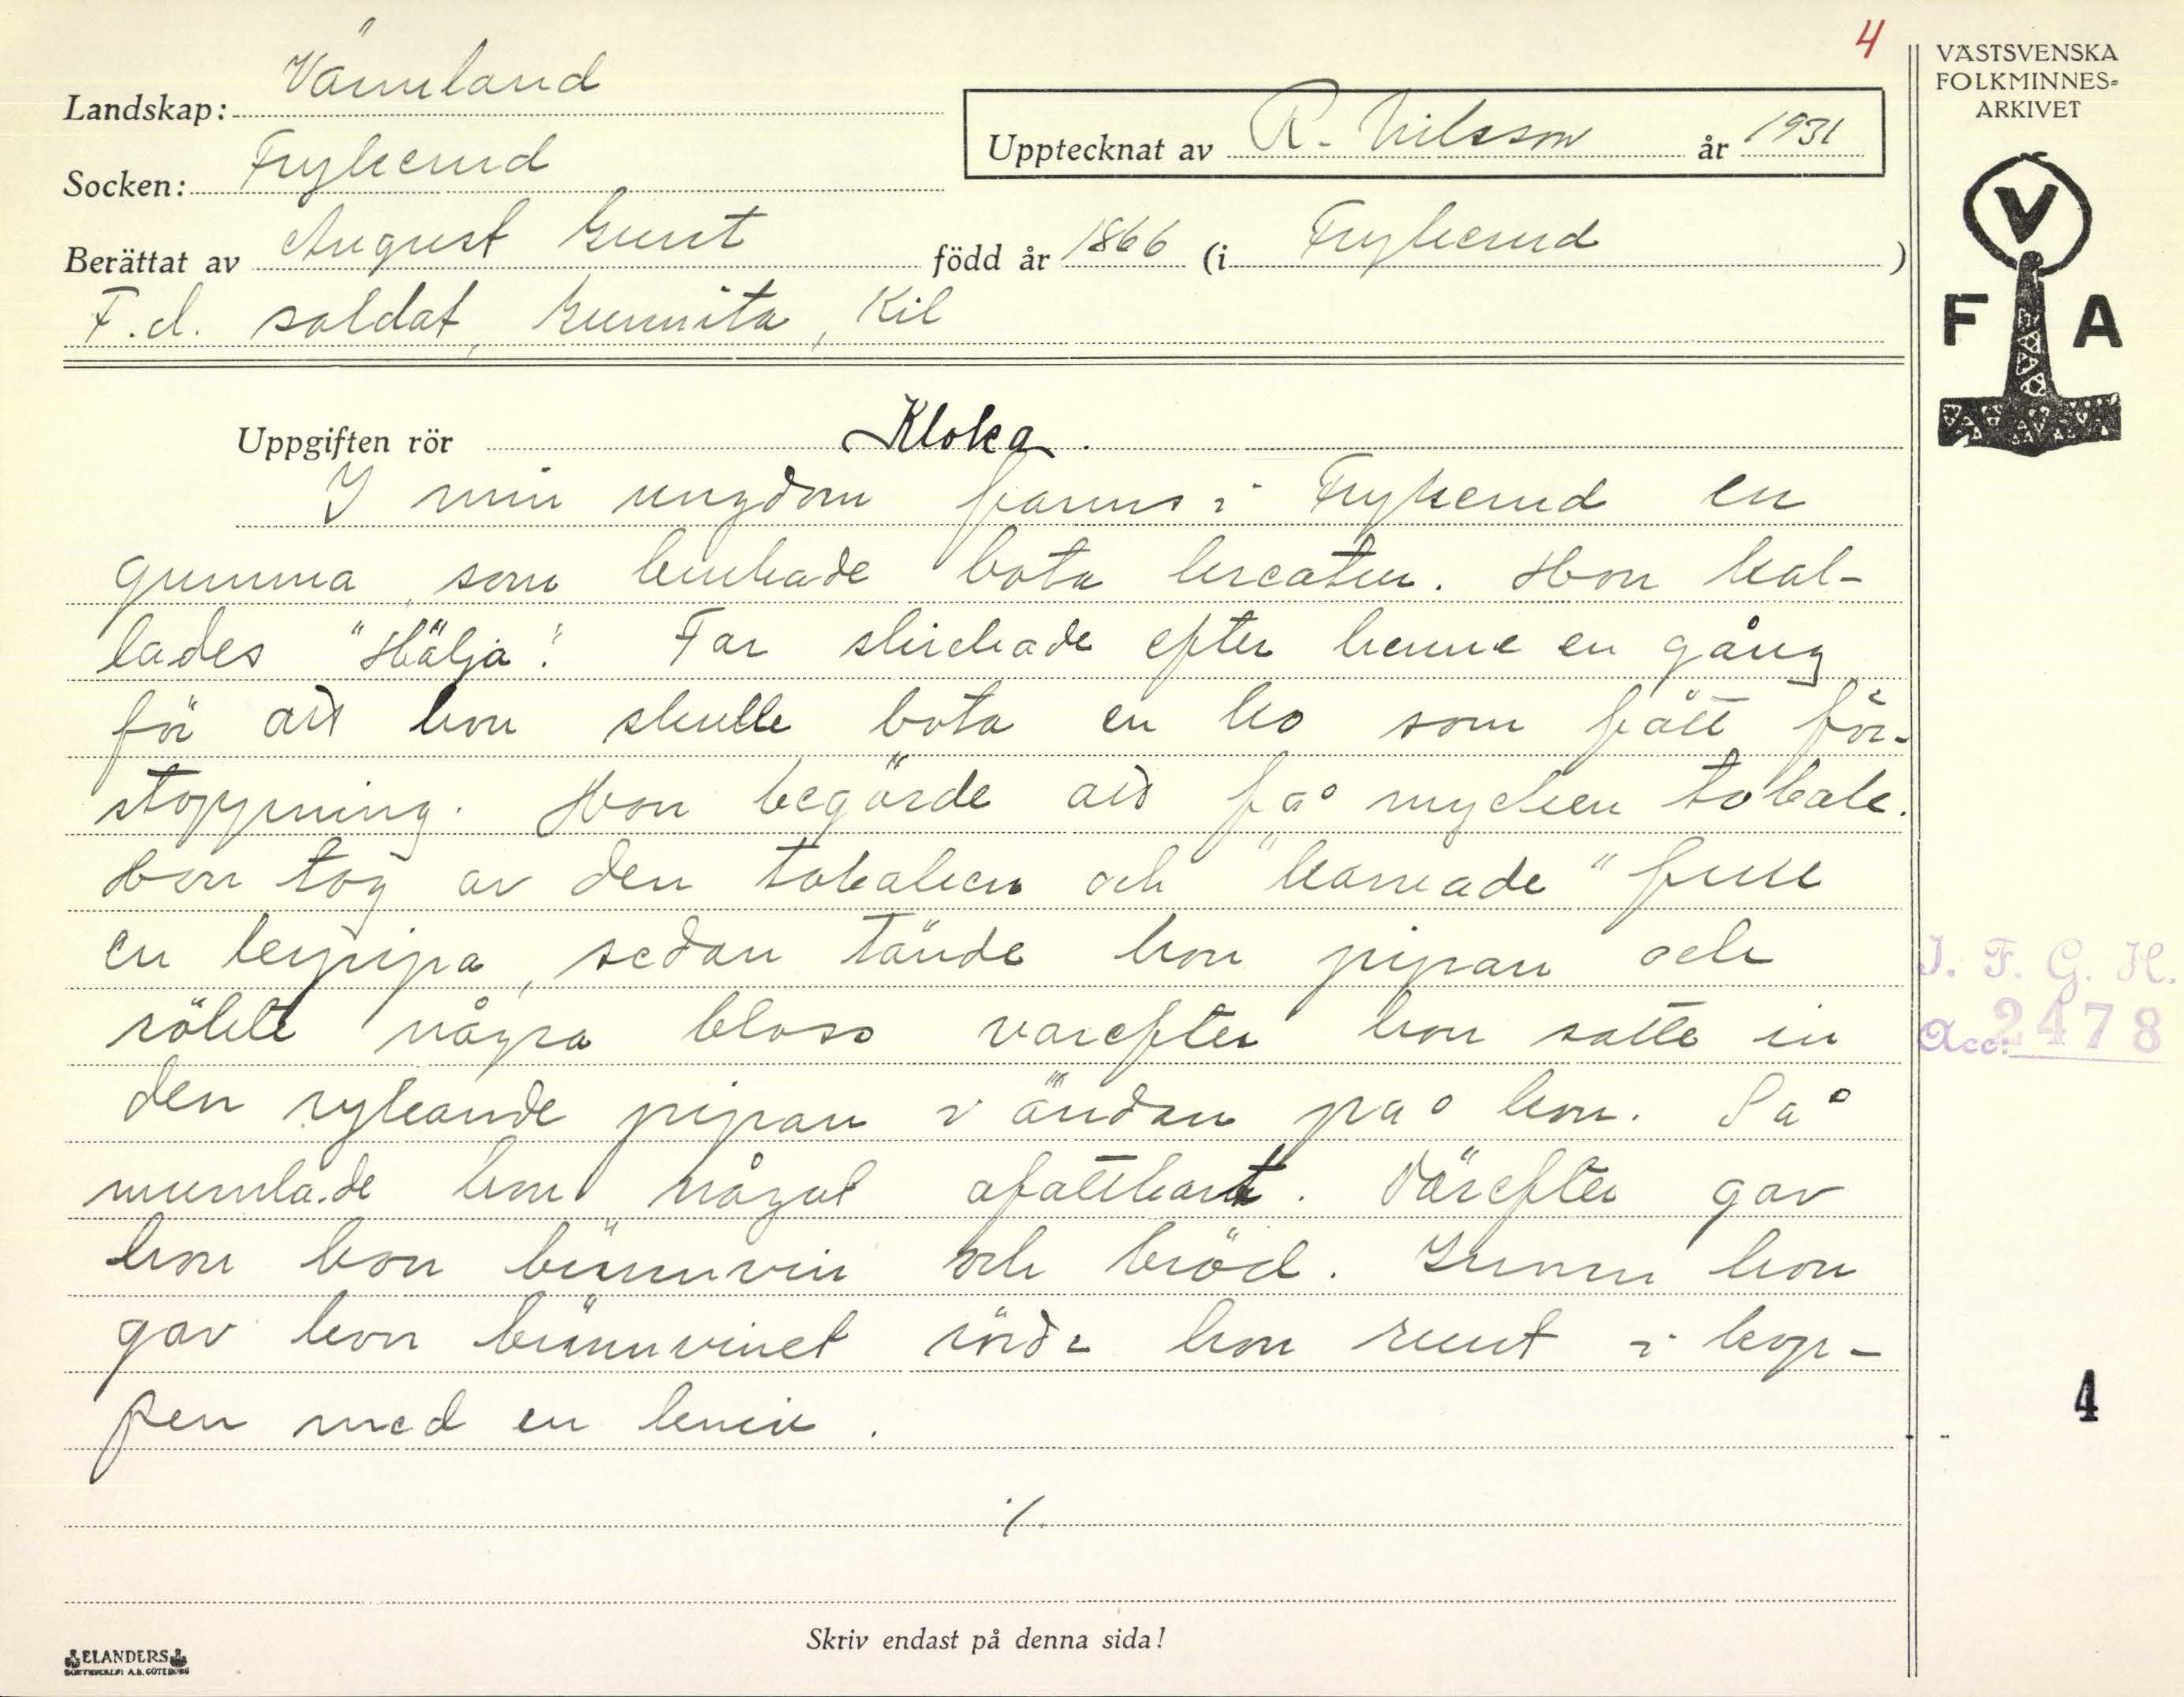 4
VÄSTSVENSKA
FOLKMINNES-
ARKIVET
Landskap: Värmland
Upptecknat av R. Nilsson år 1931
Socken: Frykerud
Berättat av August Gunt född år 1866 (i Frykerud)
F.d. soldat, Gunnita, Kil
V
F A
Uppgiften rör Kloka.
I min ungdom fanns i Frykerud en
gumma, som brukade bota kreatur. Hon kal-
lades "Hälja". Far skickade efter henne en gång
för att hon skulle bota en ko som fått för-
stoppning. Hon begärde att få mycken tobak.
Hon tog av den tobaken och "karvade" full
en lerpipa, sedan tände hon pipan och
rökte några bloss varefter hon satte in
den rykande pipan i ändan på kon. Så
mumlade hon något ofattbart. Därefter gav
hon kon brännvin och bröd. Innan hon
gav kon brännvinet rörde hon runt i kop-
pen med en kniv.
./.
I. F. G. H.
Acc. 2478
4
Skriv endast på denna sida!
ELANDERS
BOKTRYCKERI A.B. GÖTEBORG